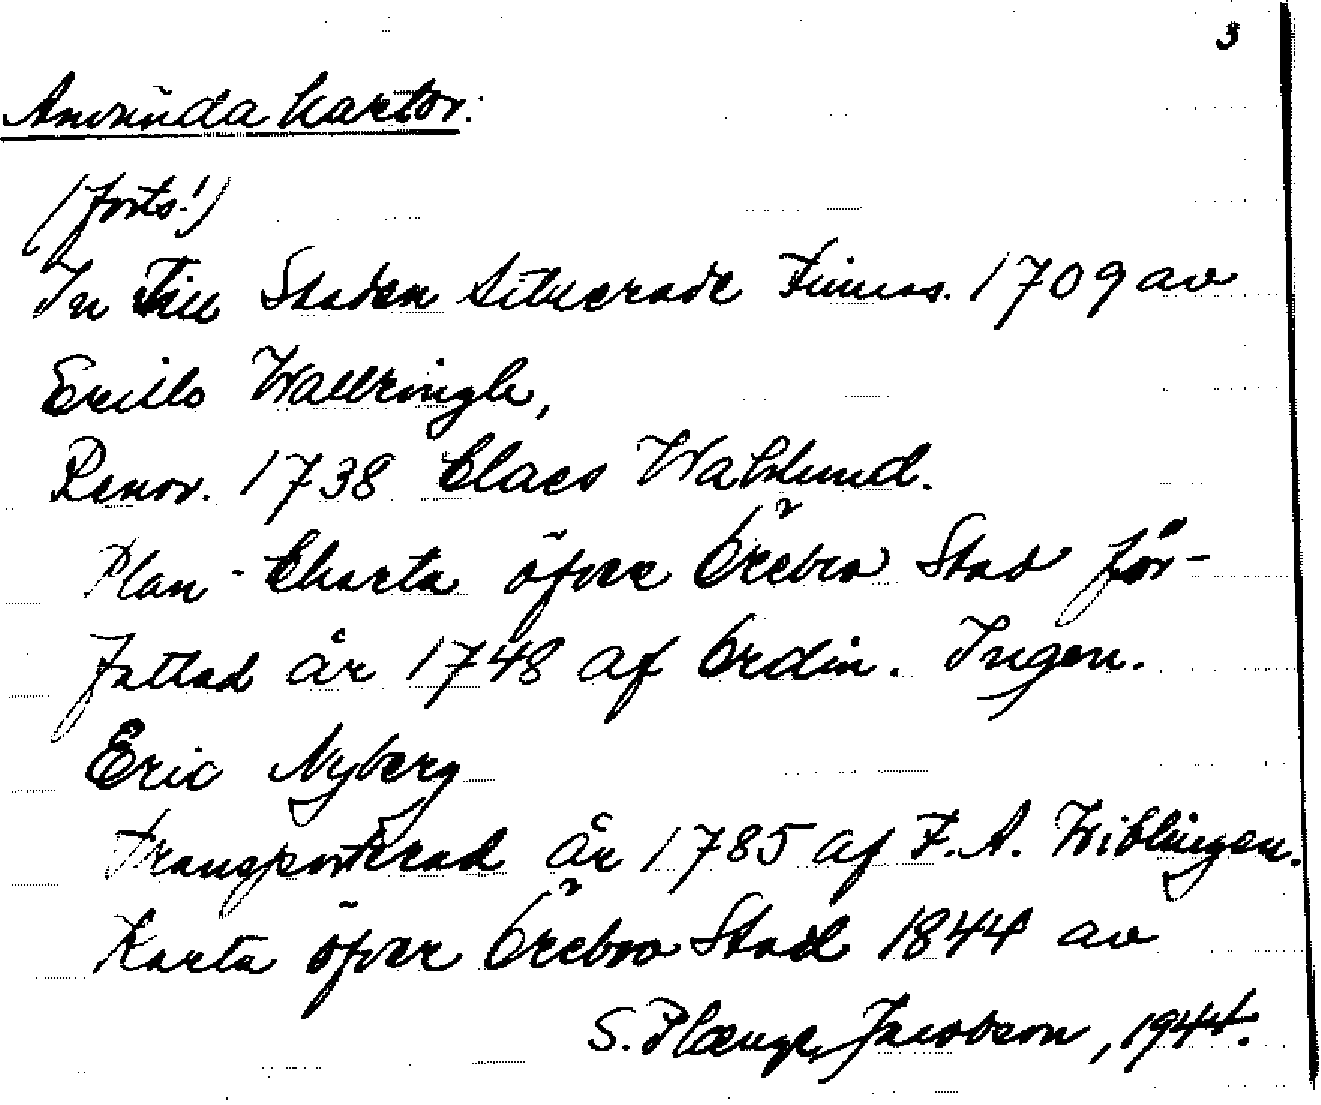 3
Använda Kartor:
(forts!)
In Till Staden Situerade 1709 av
Wallringh,
Renov. 1738 Claes Wahlund.
Plan-Charta öfver Örebro Stad för-
fattad år 1748 af Ordin. Ingen.
Eric Nyberg
Transporterad år 1785 af F.A. Wiblingen.
Karta öfver Örebro Stad 1844 av
S. Jacobson, 1944.